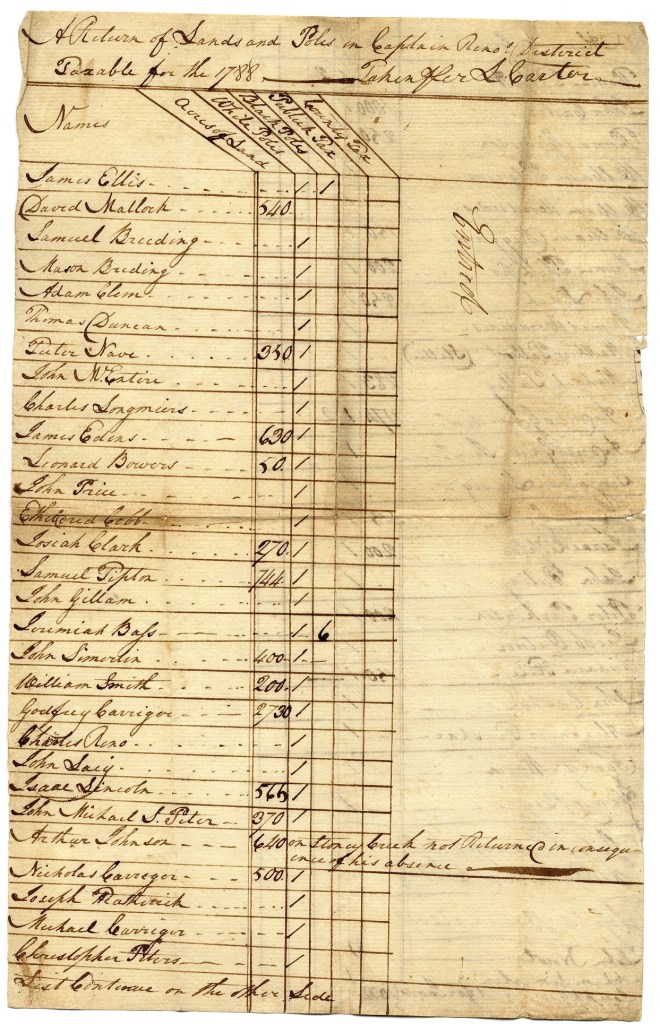 A Return of Lands and Poles in Captain Reno's District
Taxable for the 1788 Taken Per L Carter
Names
Acres of Land
White Poles
Black Poles
Publick Tax
County Tax
James Ellis 1 1
David Matlock 540
Entred
Samuel Breeding 1
Mason Breding 1
Adam Clem 1
Thomas Duncan 1
Teeter Nave 350 1
John McEntire 1
Charles Longmiers 1
James Edens 630 1
Leonard Bowers 50 1
John Price 1
Etheldred Cobb 1
Josiah Clark 270 1
Samuel Tipton 744 1
John Gillam 1
Jeremiah Bass 1 6
John Simerlin 400 1
William Smith 200 1
Godfrey Carriger 2730 1
Charles Reno 1
John Lacy 1
Isaac Lincoln 565 1
John Michael S. Peter 370 1
Arthur Johnson 640 on Stoney Creek not Returned in consequ-
ence of his absence
Nicholas Carreger 500 1
Joseph 1
Michael Carriger 1
Christopher Peters 1
List Continue on the other Side